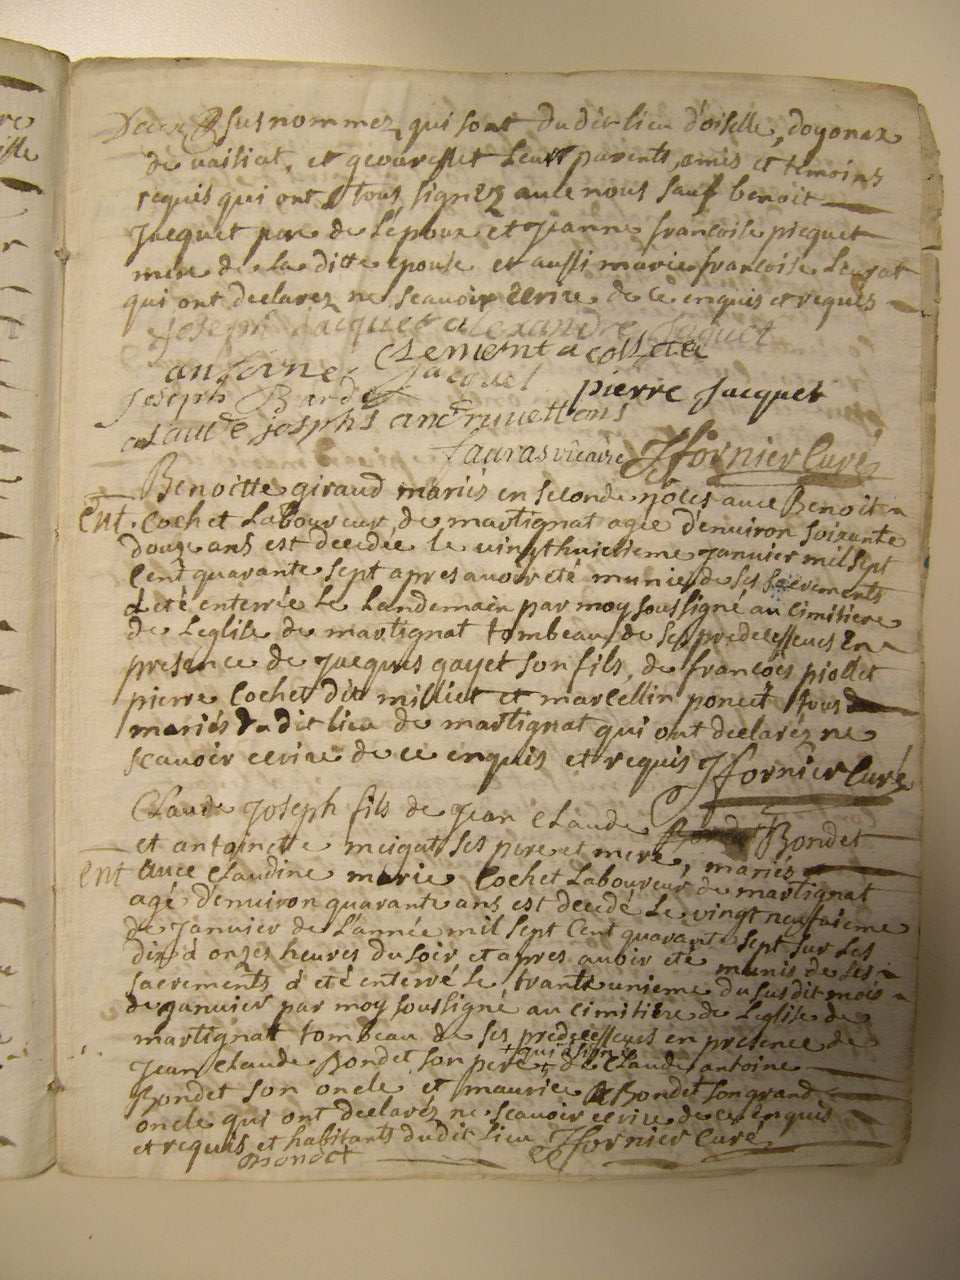 susnommez qui sont du dit lieu d'oiselle, doyonax
de vaisiat, et geovresset leurs parents, amis et temoins
requis qui ont tous signez avec nous sauf benoit
Jacquet pere de l'epoux et Jeanne francoise picquet
mere de la ditte epouse et aussi marie francoise
qui ont declarez ne scavoir ecrire de ce enquis et requis
Joseph Jacquet alexandre Jaquet
Clement a collete
antoine Jacquet
Joseph Bardet pierre Jacquet
claude joseph
fauras vicaire Jfornier Curé
Benoitte giraud mariés en seconde nôces avec Benoit
Ent. Cochet Laboureur de martignat agée d'environ soixante
douze ans est decedée le vingt huictieme Janvier mil sept
Cent quarante sept apres avoir été munie de ses sacrements
a été enterrée le landemain par moy soussigné au cimitiere
de leglise de martignat tombeau de ses predecesseurs en
presence de Jacques gayet son fils, de françois piollet
pierre Cochet dit milliet et marcellin poncet tous
mariés du dit lieu de martignat qui ont declarés ne
scavoir ecrire de ce enquis et requis Jfornier Curé
Claude Joseph fils de Jean Claude Bondet
et antoinette meigat ses pere et mere, mariés
Ent avec Claudine marie Cochet Laboureur de martignat
agé d'environ quarante ans est decedé le vingt neufvieme
de Janvier de l'année mil sept Cent quarante sept sur les
dix a onzes heures du soir et apres avoir été munis de ses
sacrements a été enterré le trante unieme du susdit mois
de Janvier par moy soussigné au cimitiere de leglise de
martignat tombeau de ses predecesseurs en presence de
Jean Claude Bondet son pere + qui a signé + de Claude antoine
Bondet son oncle et maurice Bondet son grand
oncle qui ont declarés ne scavoir ecrire de ce enquis
et requis et habitants du dit lieu Jfornier Curé
Bondet